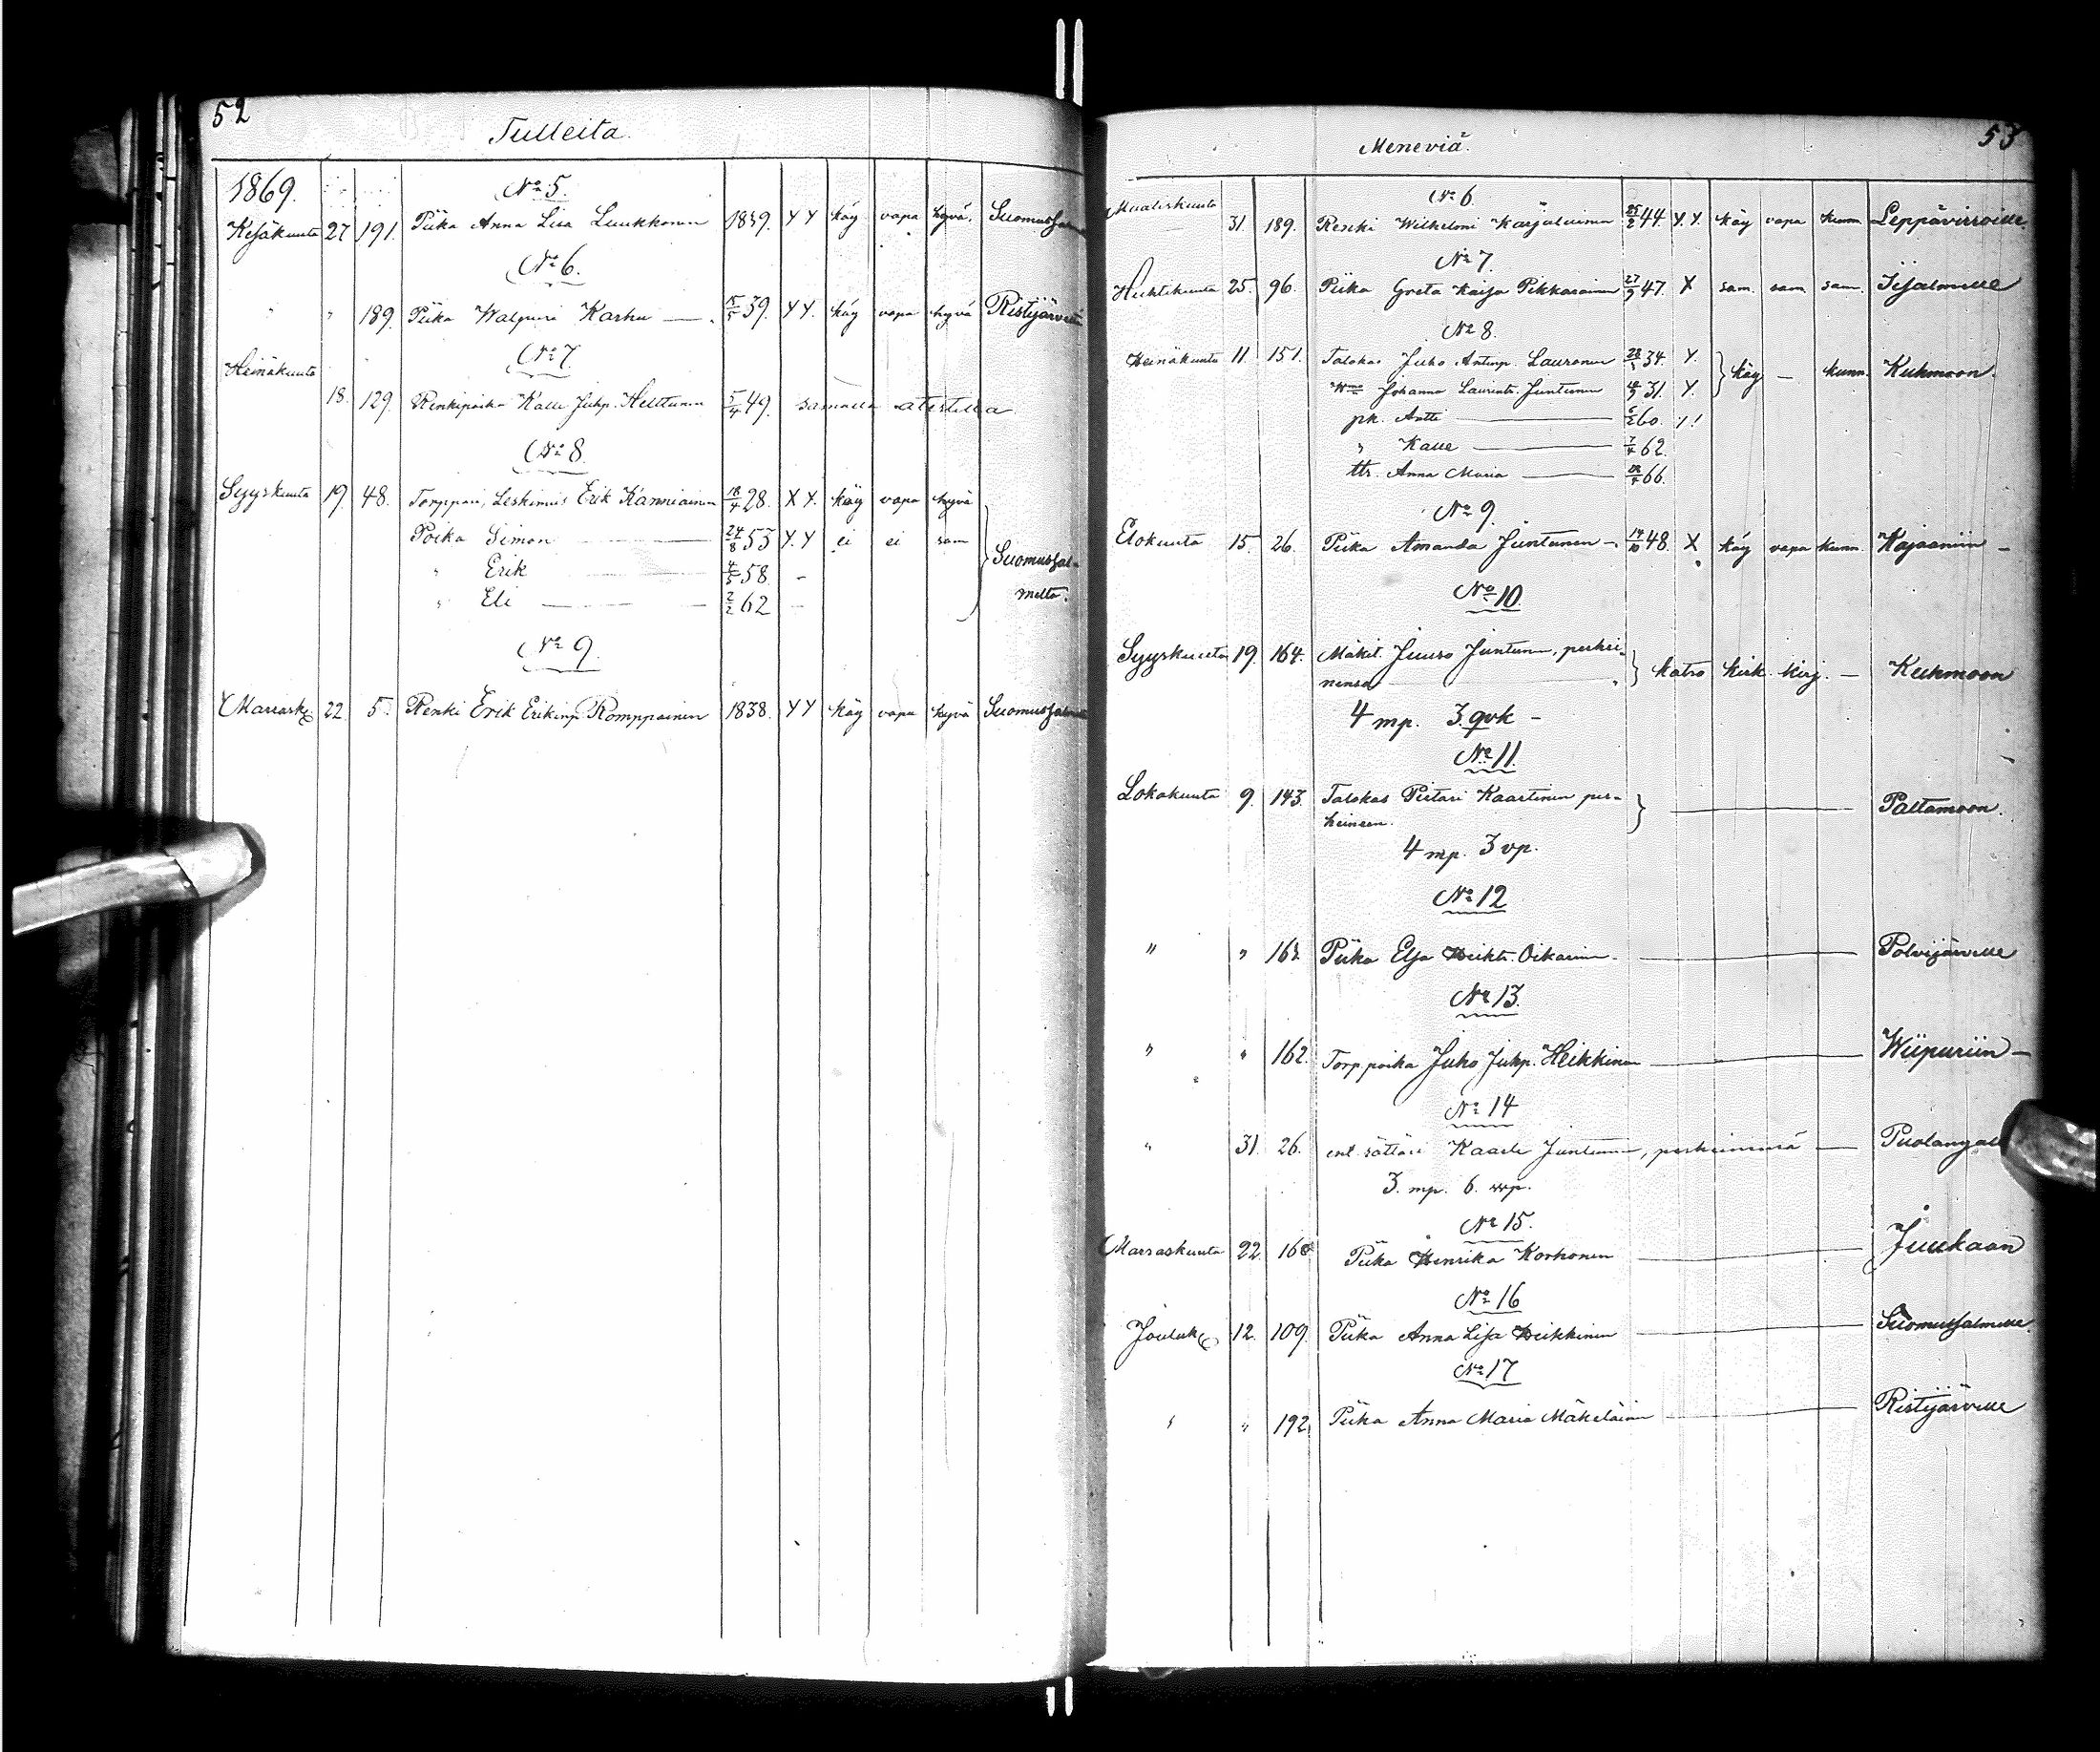 52
Tulleita.
1869.
No 5.
Kesäkuuta 27 191. Piika Anna Lisa Luukkonen 1839. XX käy vapa hyvä. Suomussal
No 6.
" " 189. Piika Walpuri Karhu — 15/5 39. XX. käy vapa hyvä Ristijärveltä
No 7.
Heinäkuuta
18. 129. Renkipoika Kalle Juhp. Helttunen 5/4 49. samalla atestilla
No 8.
Syyskuuta 19. 48. Torppari, Leskimies Erik Kanniainen 18/4 28. XX. käy vapa hyvä
Poika Simon — 24/8 53 X.X ei ei sam
" Erik — 4/5 58. - Suomussal-
" Eli — 2/2 62 - melta.
No 9.
Marrask. 22. 5. Renki Erik Erikinp. Romppainen 1838. XX käy vapa hyvä Suomussalmelta
53
Meneviä.
No 6.
Maaliskuuta
31. 189. Renki Wilhelmi Karjalainen 25/2 44. X.X. käy vapa kunn. Leppävirroille.
No 7.
Huhtikuuta 25. 96. Piika Greta Kaisa Pikkarainen 27/9 47. X sam. sam. sam. Iisalmelle
No 8.
Heinäkuuta 11. 151. Talokas Juho Antinp. Lauronen 34. X. käy — kunn. Kuhmoon.
Johanna Laurintr. Juntunen 31. X.
pk. Antti — 60.
" Kalle — 7/4 62.
ttr. Anna Maria — 66.
No 9.
Elokuuta 15. 26. Piika Amanda Juntunen — 14/10 48. X käy vapa kunn. Kajaaniin —
No 10.
Syyskuuta 19. 164. Mäkit. Juuso Juntunen, perhei-
nensä — katso kirk. kirj. — Kuhmoon
4 mp. 3. qvk —
No 11.
Lokakuuta 9. 143. Talokas Pietari Kaartinen per-
heineen. — Paltamoon.
4 mp. 3 vp.
No 12
" " 163. Piika Elsa Heikt. Oikarinen — Polvijärvelle
No 13.
" " 162. Torp.poika Juho Juhp. Heikkinen — Wiipuriin —
No 14
" 31. 26. ent. Kaarle Juntunen, perheinensä — Puolangall
3. mp. 6. vp.
No 15.
Marraskuuta 22. 168 Piika Henrika Korhonen — Juukaan
No 16
Jouluk. 12. 109. Piika Anna Lisa Heikkinen — Suomussalmelle.
No 17
" " 192. Piika Anna Maria Mäkeläinen — Ristijärvelle